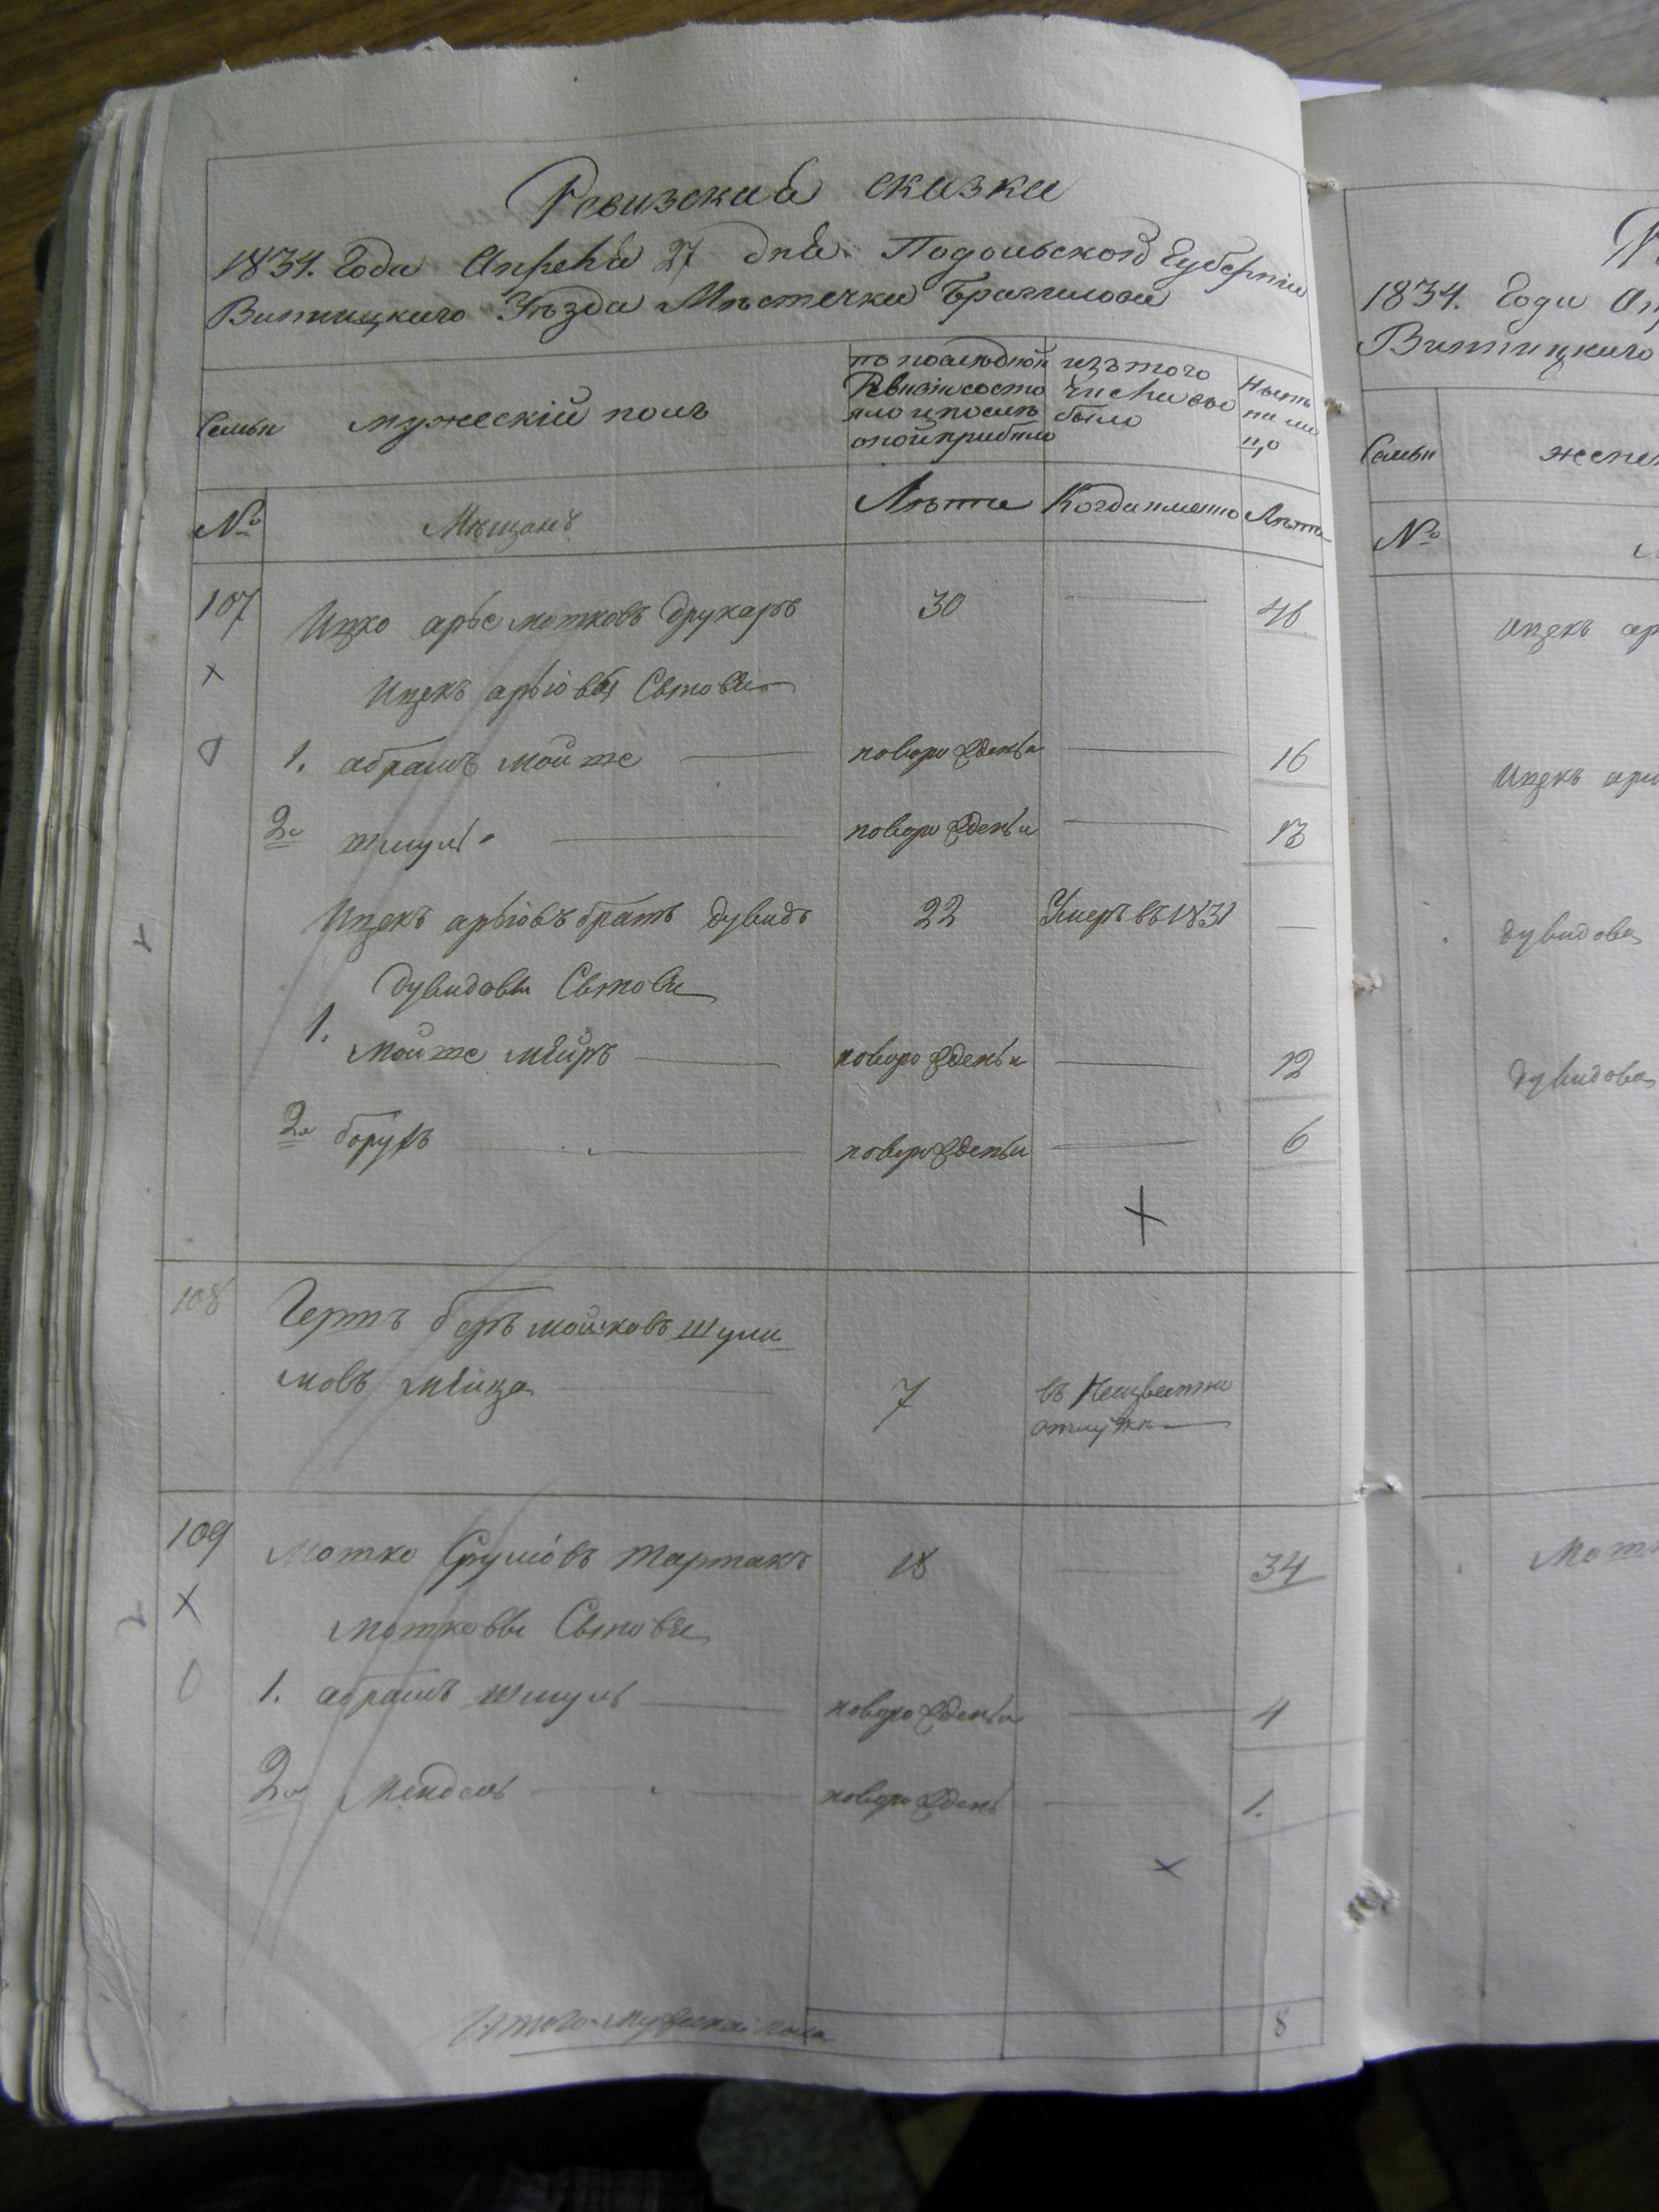 Ревизская сказка
1834. Года Апреля 27 дня Подольской Губернии
Винницкаго Уѣзда Мѣстечка Браилова
Семьи
мужескій полъ
по последней
Ревизіи состо
яло и после
оной прибыло
изъ того
числа вы
было
Нынѣ
на ли
цо
№
Мѣщанъ
Лѣта
Когда именно
Лѣта
107
Ицко арье мотковъ друкаръ
30
46
Ицекъ арьіовы Сыновья
1. абрамъ мойше
новорожденны
16
2й шмуль
новорожденны
13
Ицекъ арьіовъ братъ дувидъ
22
Умеръ въ 1831
дувидовы Сыновья
1. мойше мейръ
новорожденны
12
2й борухъ
новорожденны
6
108
Герш беръ мошковъ шули
мовъ
7
въ Неизвестной
отлучке
109
Мотко Срулiовъ тартакъ
18
34
Мотковы Сыновья
1. абрамъ шмуль
новорожденны
4
2й Мендель
новорожден
1.
Итого мужеска пола
8
1834. Года
Винницкаго
Семьи
№
Ицекъ
Ицекъ
дувидова
дувидова